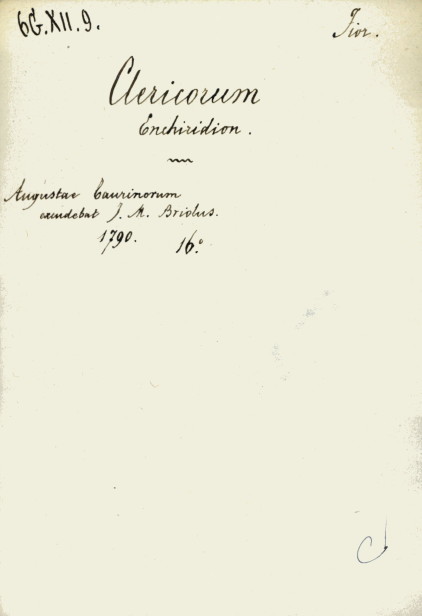 6G.XII.9.
Fior.
Clericorum
Enchiridion.
Augustae Taurinorum
excudebat J. M. Briolus.
1790. 16°